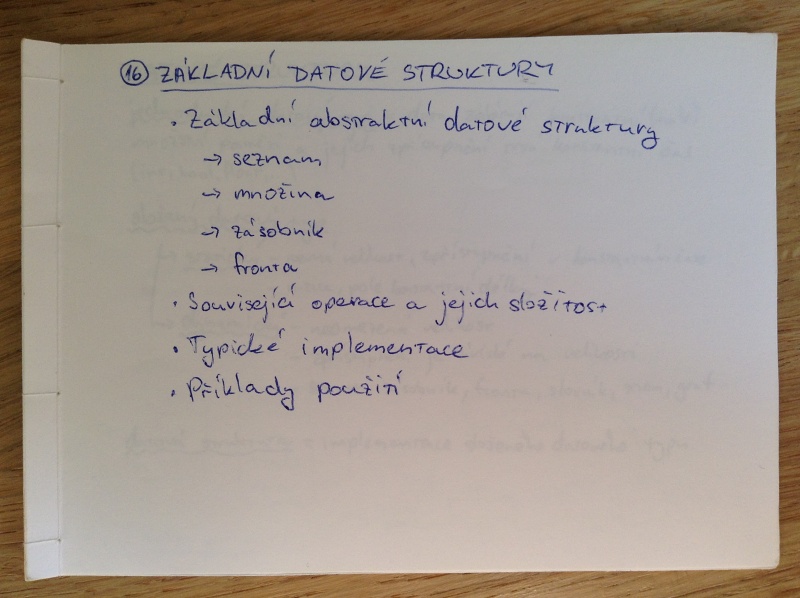 16 ZÁKLADNÍ DATOVÉ STRUKTURY
• Základní abstraktní datové struktury
→ seznam
→ množina
→ zásobník
→ fronta
• Související operace a jejich složitost
• Typické implementace
• Příklady použití